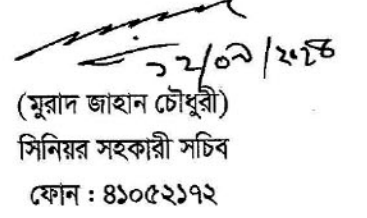 ১২/০৯/২০২৪
(মুরাদ জাহান চৌধুরী)
সিনিয়র সহকারী সচিব
ফোন : ৪১০৫২১৭২